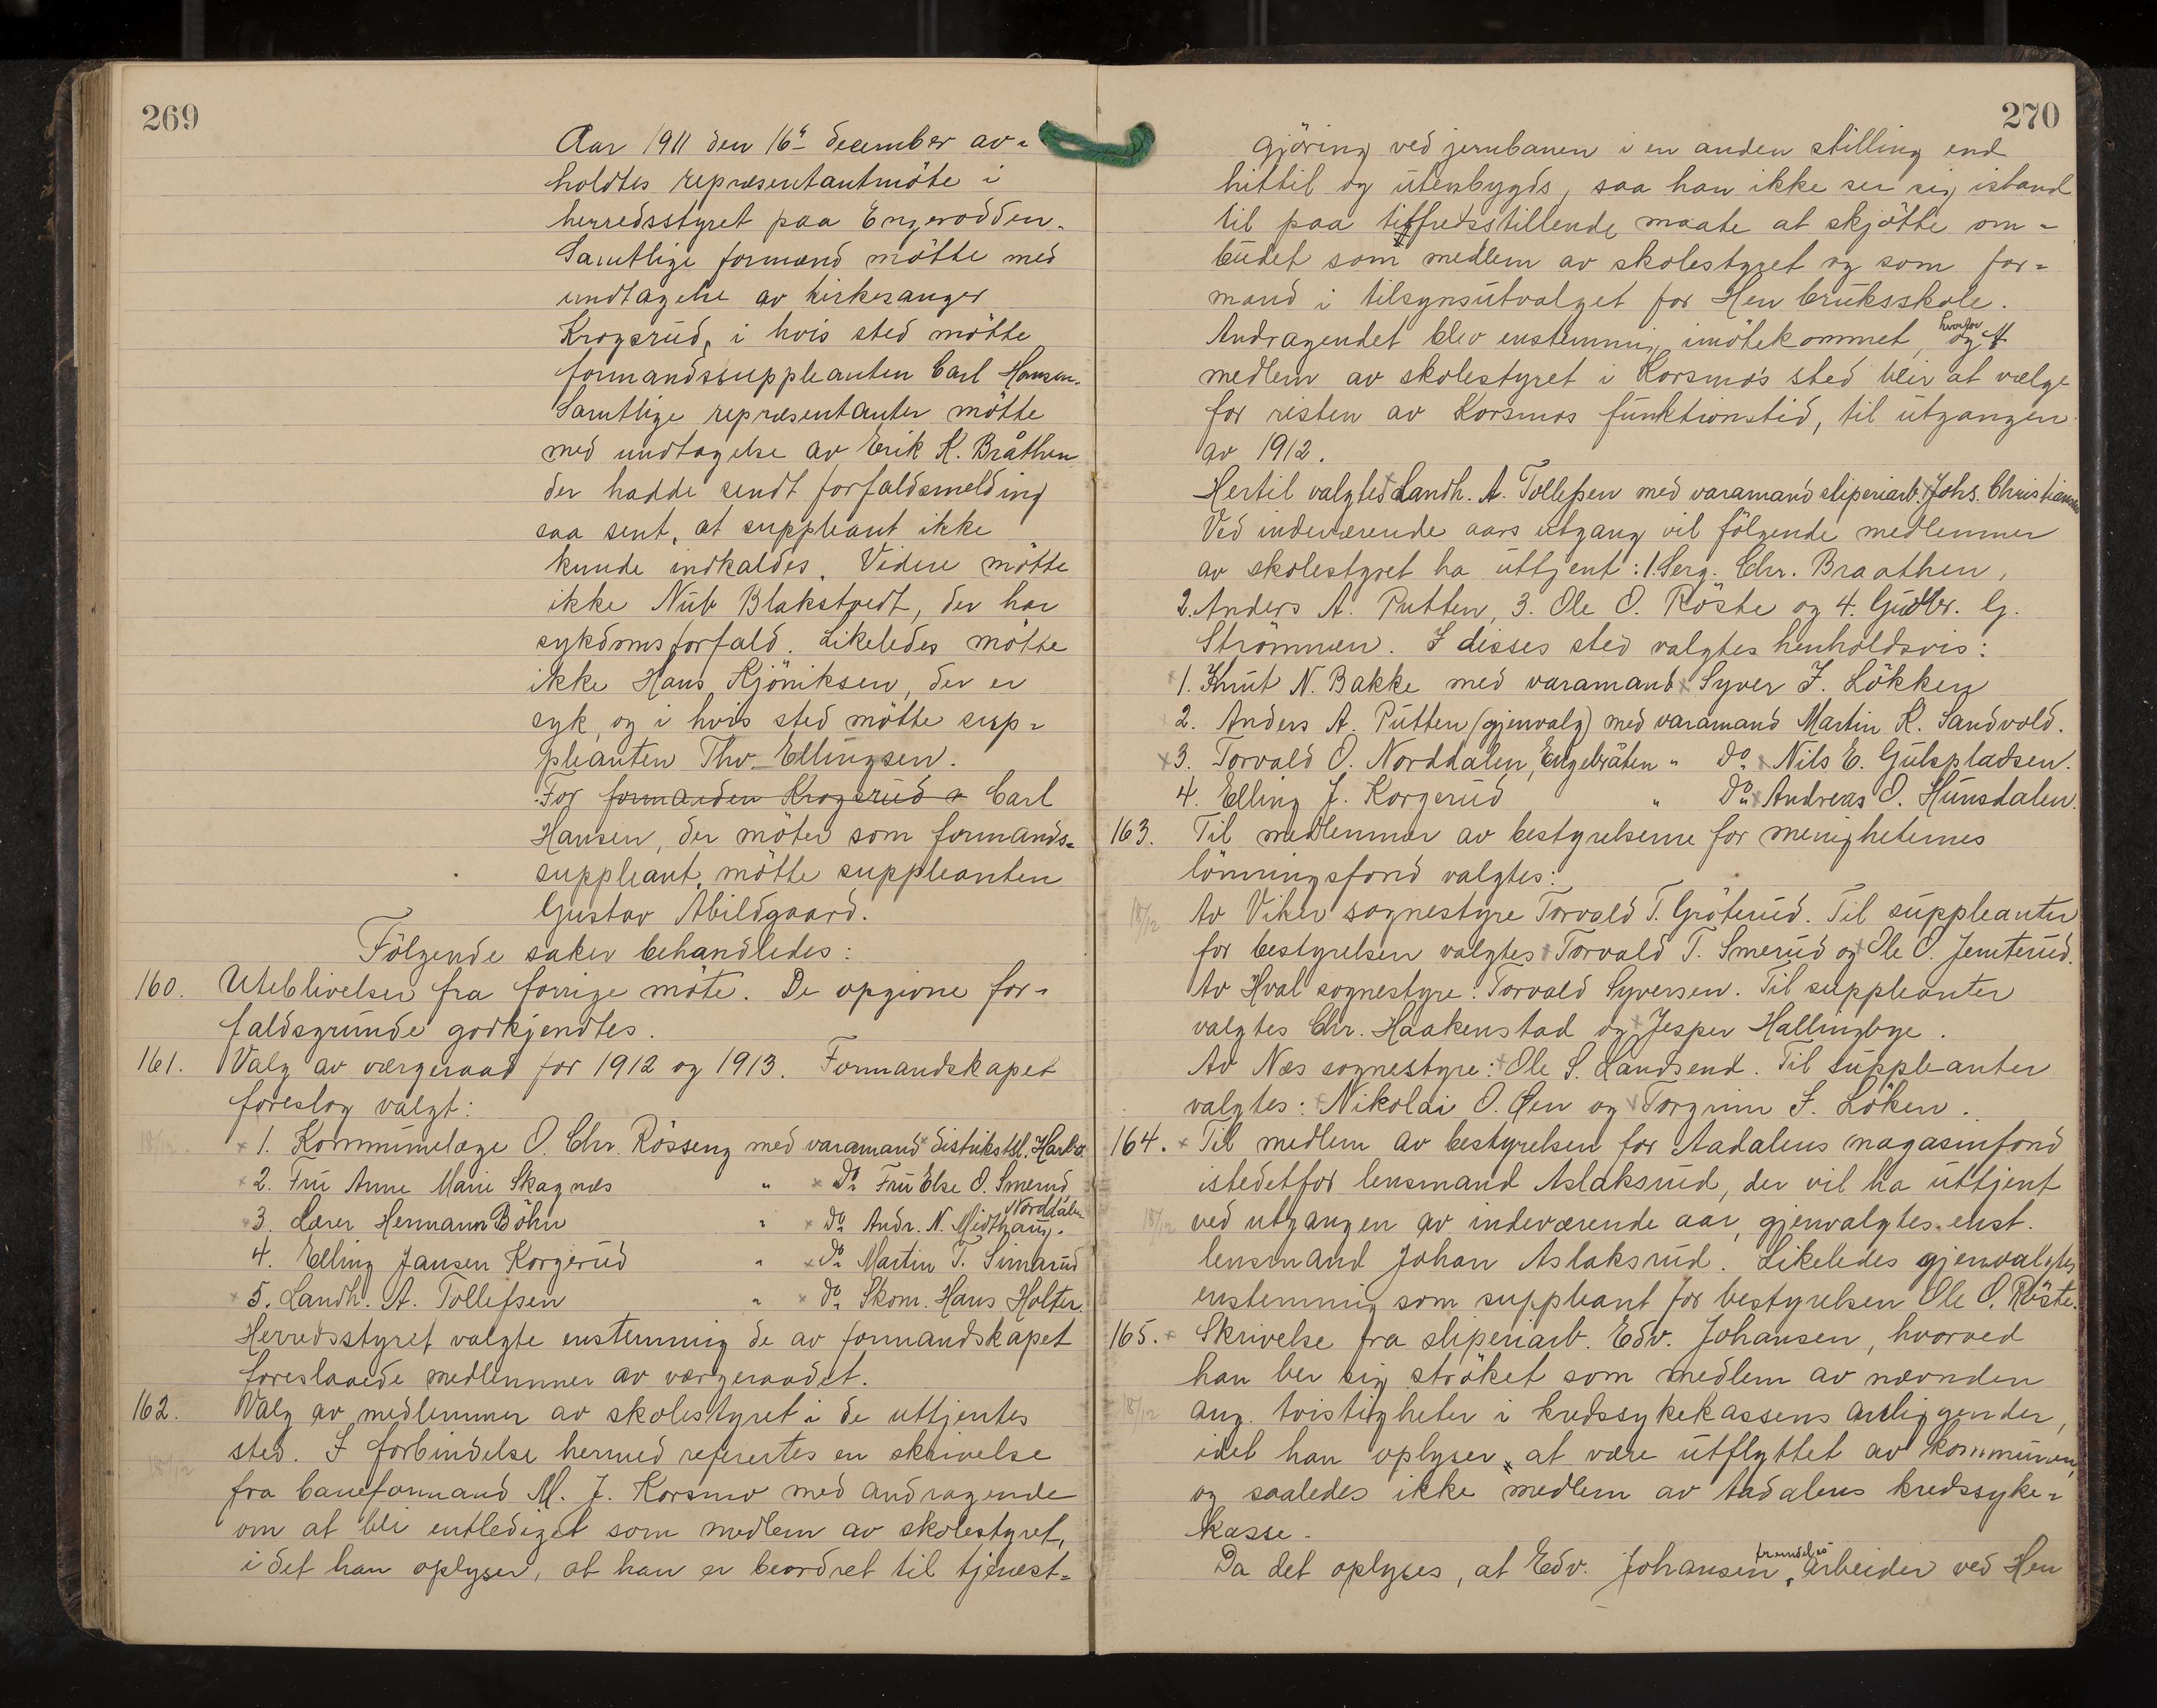 269
Aar 1911 den 16de december av-
holdtes repræsentantmöte i
herredsstyret paa Engerodden.
Samtlige formænd mötte med
undtagelse av kirkesanger
Krogsrud, i hvis sted mötte
formandssuppleanten Carl Hansen.
Samtlige repræsentanter mötte
med undtagelse av Erik K. Bråthen
der hadde sendt forfaldsmelding
saa sent, at suppleant ikke
kunde indkaldes. Videre mötte
ikke Nub Blakstvedt, der har
sykdomsforfald. Likeledes mötte
ikke Hans Kjöniksen, der er
syk, og i hvis sted mötte sup-
pleanten Thv. Ellingsen.
For formanden Krogsrud Carl
Hansen, der möter som formands-
suppleant, mötte suppleanten
Gustav Abildgaard.
Fölgende saker behandledes:
160. Uteblivelser fra forrige möte. De opgivne for-
faldsgrunde godkjendtes.
161. Valg av værgeraad for 1912 og 1913. Formandskapet
foreslog valgt:
18/12 1. Kommunelæge O. Chr. Rösseng med varamand distriktsl. Harbo
2. Fru Anne Marie Skagnæs " Do Fru Else O. Smerud
3. Lærer Hermann Böhn " Do Andr. N. Midthaug. Norddalen
4. Elling Jansen Korgerud " Do Martin T. Simarud
5. Landh. A. Tollefsen " Do Skom. Hans Holter.
Herredsstyret valgte enstemmig de av formandskapet
foreslaaede medlemmer av værgeraadet.
162. Valg av medlemmer av skolestyret i de uttjentes
18/12 sted. I forbindelse hermed referertes en skrivelse
fra baneformand M. J. Korsmo med andragende
om at bli entlediget som medlem av skolestyret,
idet han oplyser, at han er beordret til tjenest-
270
gjöring ved jernbanen i en anden stilling end
hittil og utenbygds, saa han ikke ser sig istand
til paa tilfredsstillende maate at skjötte om-
budet som medlem av skolestyret og som for-
mand i tilsynsutvalget for Hen bruksskole.
Andragendet blev enstemmig imötekommet, hvorfor
medlem av skolestyret i Korsmo's sted blir at vælge
for resten av Korsmos funktionstid, til utgangen
av 1912.
Hertil valgtes Landh. A. Tollefsen med varamand sliperiarb. Johs. Christiansen
Ved indeværende aars utgang vil fölgende medlemmer
av skolestyret ha uttjent: 1. Serg. Chr. Braathen,
2. Anders A. Putten, 3. Ole O. Röste og 4. Gudbr. G.
Strömmen. I disses sted valgtes henholdsvis:
1. Knut N. Bakke med varamand Syver I. Lökken
2. Anders A. Putten (gjenvalg) med varamand Martin K. Sandvold.
3. Torvald O. Norddalen, Engebråten " Do Nils E. Gulspladsen.
4. Elling J. Korgerud " Do Andreas O. Hunsdalen.
163. Til medlemmer av bestyrelserne for menigheternes
lönningsfond valgtes:
18/12 Av Viker sognestyre Torvald T. Gröterud. Til suppleanter
for bestyrelsen valgtes Torvald T. Smerud og Ole O. Jemterud.
Av Hval sognestyre: Torvald Syversen. Til suppleanter
valgtes Chr. Haakenstad og Jesper Hallingbye.
Av Næs sognestyre: Ole S. Landsend. Til suppleanter
valgtes: Nikolai O. Øen og Torgrim I. Löken.
164. Til medlem av bestyrelsen for Aadalens magasinfond
istedetfor lensmand Aslaksrud, der vil ha uttjent
18/12 ved utgangen av indeværende aar, gjenvalgtes enst.
lensmand Johan Aslaksrud. Likeledes gjenvalgtes
enstemmig som suppleant for bestyrelsen Ole O. Röste.
165. Skrivelse fra sliperiarb. Edv. Johansen, hvorved
han ber sig ströket som medlem av nævnden
18/12 ang. tvistigheter i kredssykekassens anliggender,
idet han oplyser at være utflyttet av kommunen,
og saaledes ikke medlem av Aadalens kredssyke-
kasse.
Da det oplyses, at Edv. Johansen fremdeles arbeider ved Hen